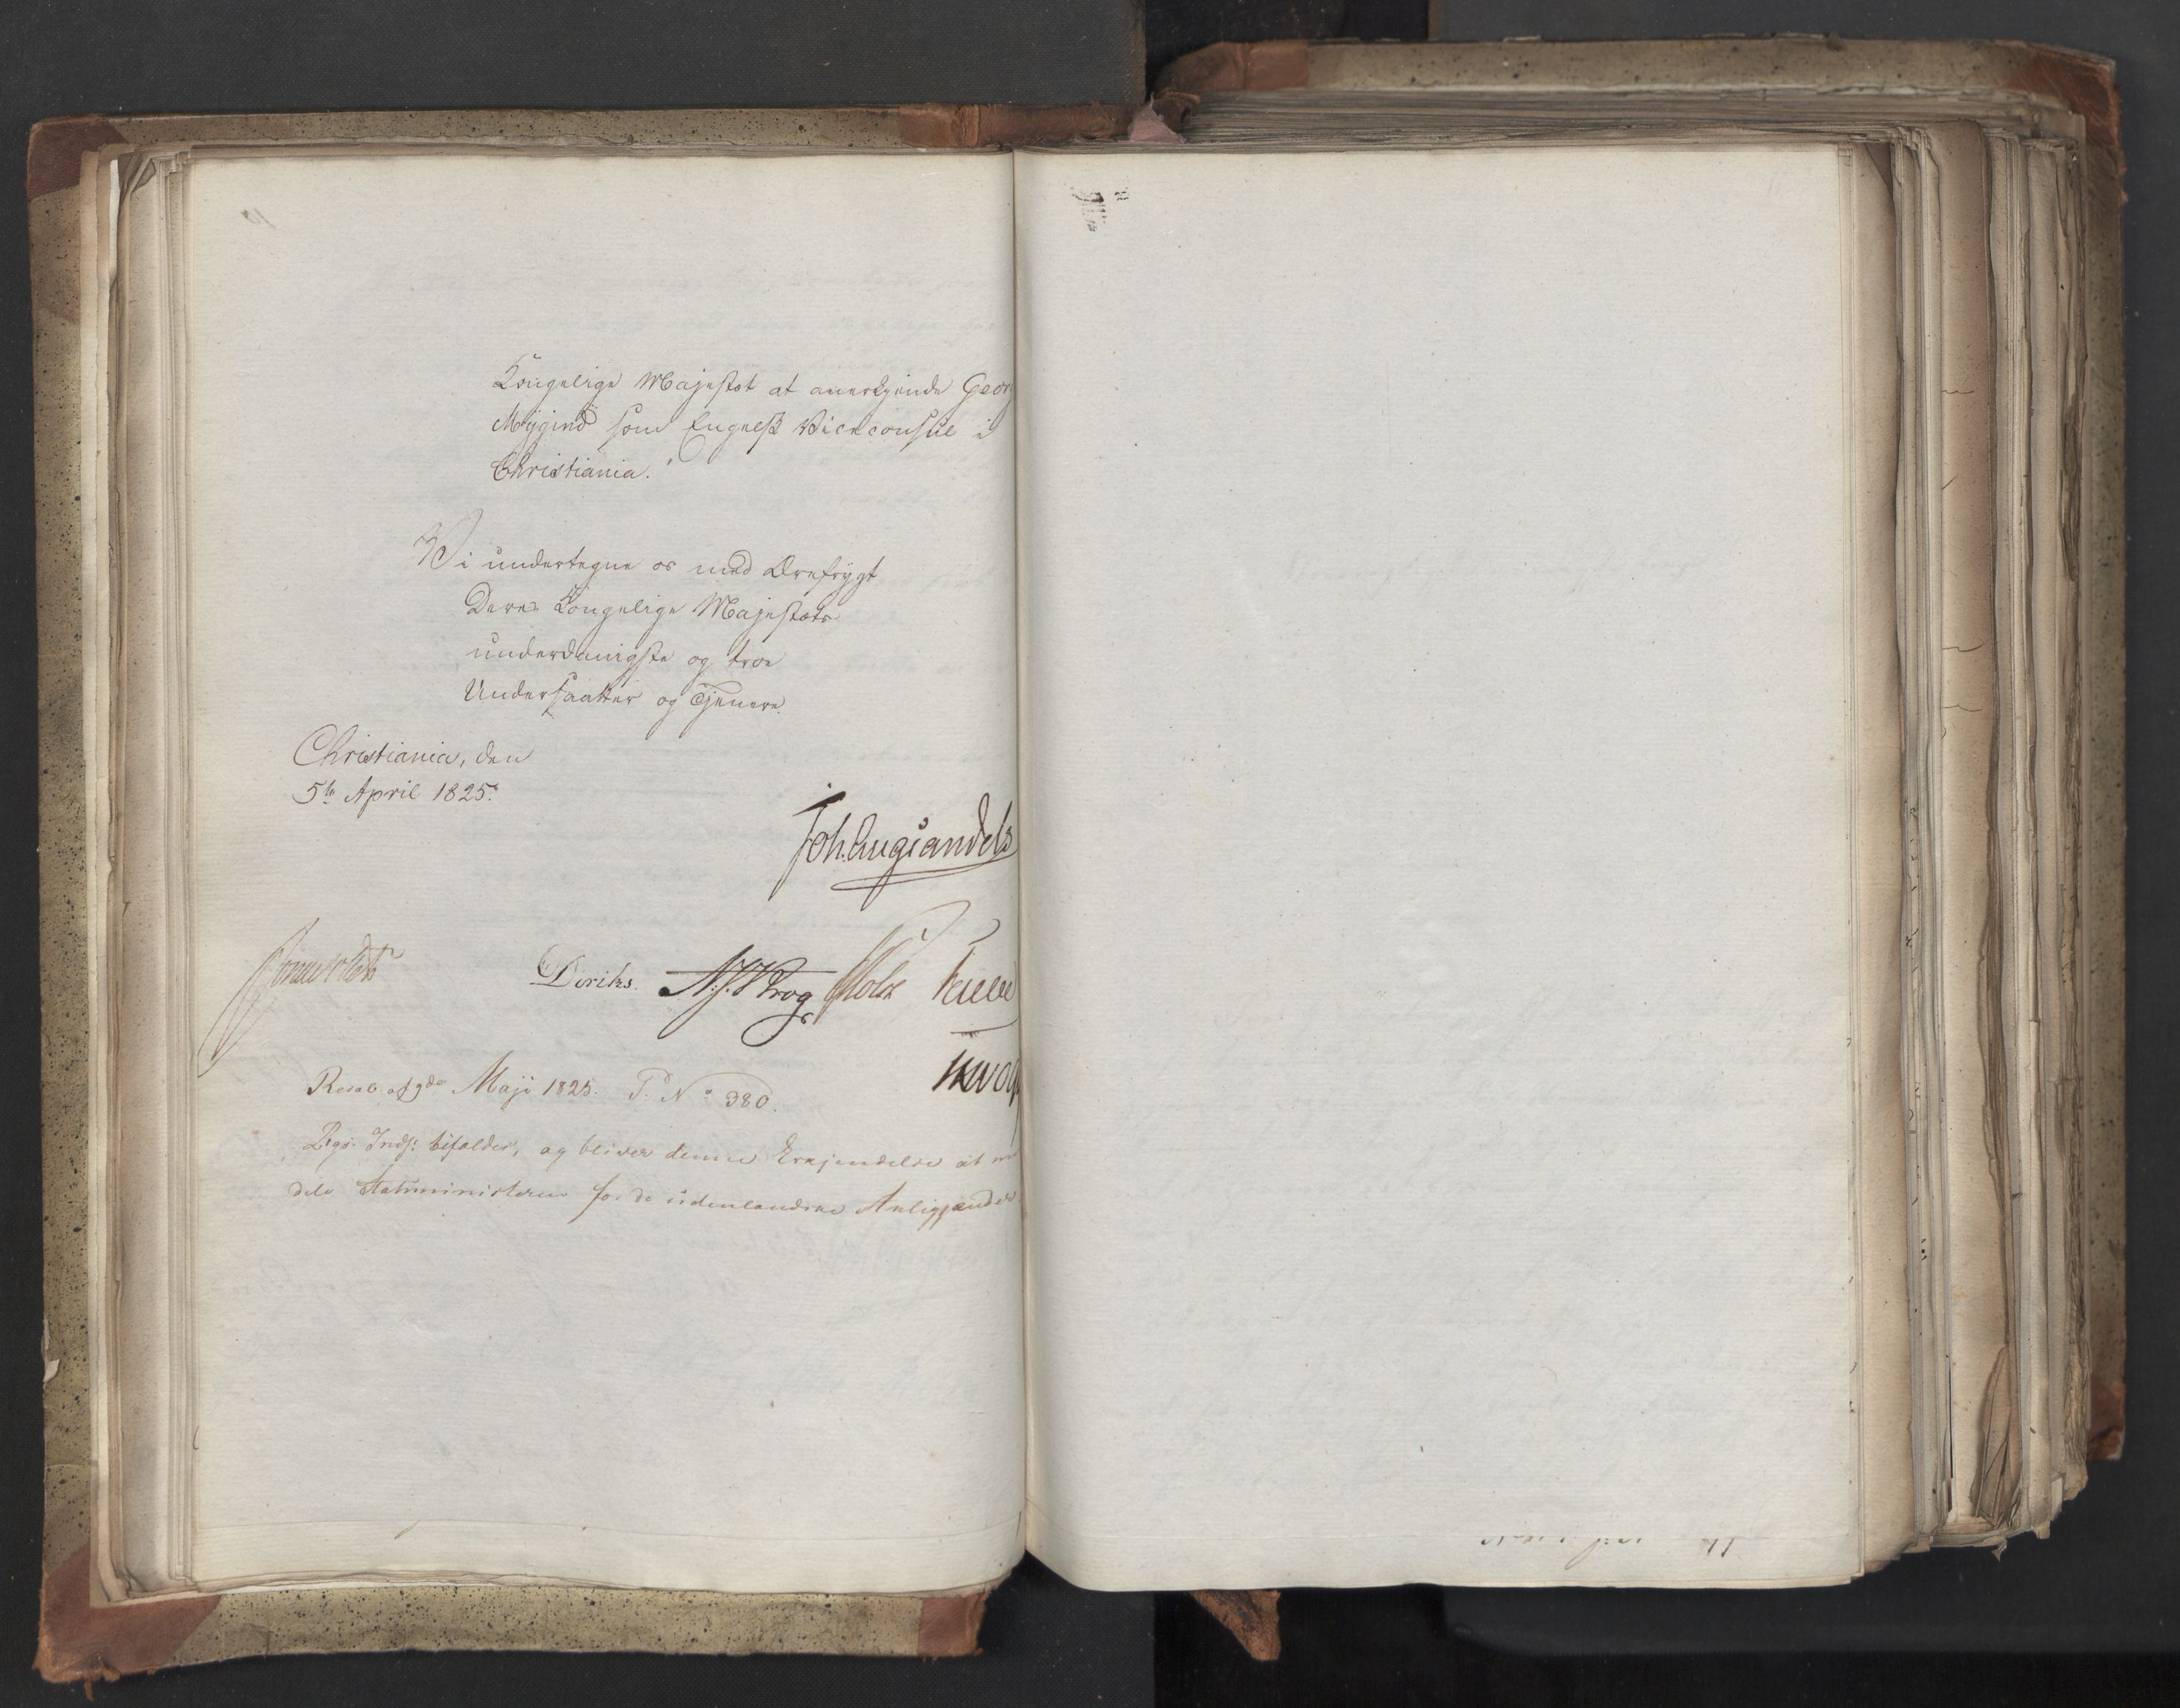 Kongelige Majestæt at anerkjende Georg
Mygind som Engelsk Viceconsul i
Christiania."
Vi undertegne os med Ærefrygt
Deres Kongelige Majestæts
underdanigste og troe
Undersaatter og Tjenere.
Christiania, den
5te April 1825.
Joh. Aug Sandels
Diriks. N. J. Krog Holst
Resol. af 9de Maji 1825. P. No 380.
Rgs. Inds: bifaldes, og bliver denne Erkjendelse at
dele Statsministeren for de udenlandske Anliggender